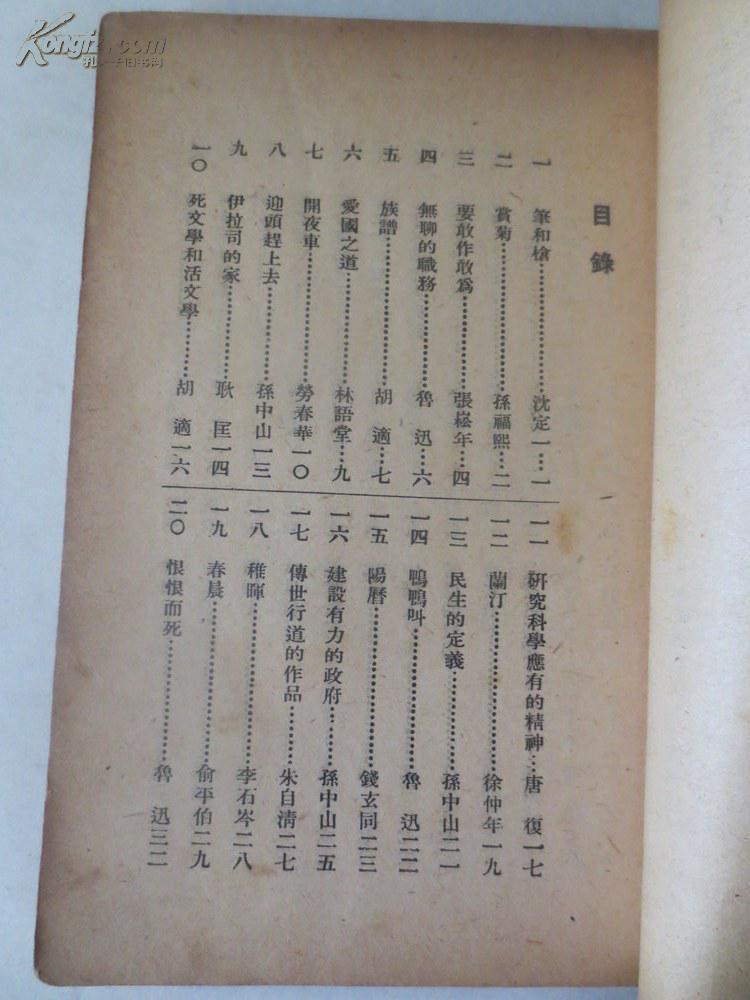 目錄
一 筆和槍…………沈定一…一
二 賞菊…………孫福熙…二
三 要敢作敢爲…………張崧年…四
四 無聊的職務…………魯迅…六
五 族譜…………胡適…七
六 愛國之道…………林語堂…九
七 開夜車…………勞春華一〇
八 迎頭趕上去…………孫中山一三
九 伊拉司的家…………耿匡一四
一〇 死文學和活文學…………胡適一六
一一 研究科學應有的精神…唐復一七
一二 蘭汀…………徐仲年一九
一三 民生的定義…………孫中山二一
一四 鴨鴨叫…………魯迅二二
一五 陽曆…………錢玄同二三
一六 建設有力的政府…………孫中山二五
一七 傳世行道的作品…………朱自淸二七
一八 稚暉…………李石岑二八
一九 春晨…………俞平伯二九
二〇 恨恨而死…………魯迅三二
Kongfz.com
孔夫子旧书网